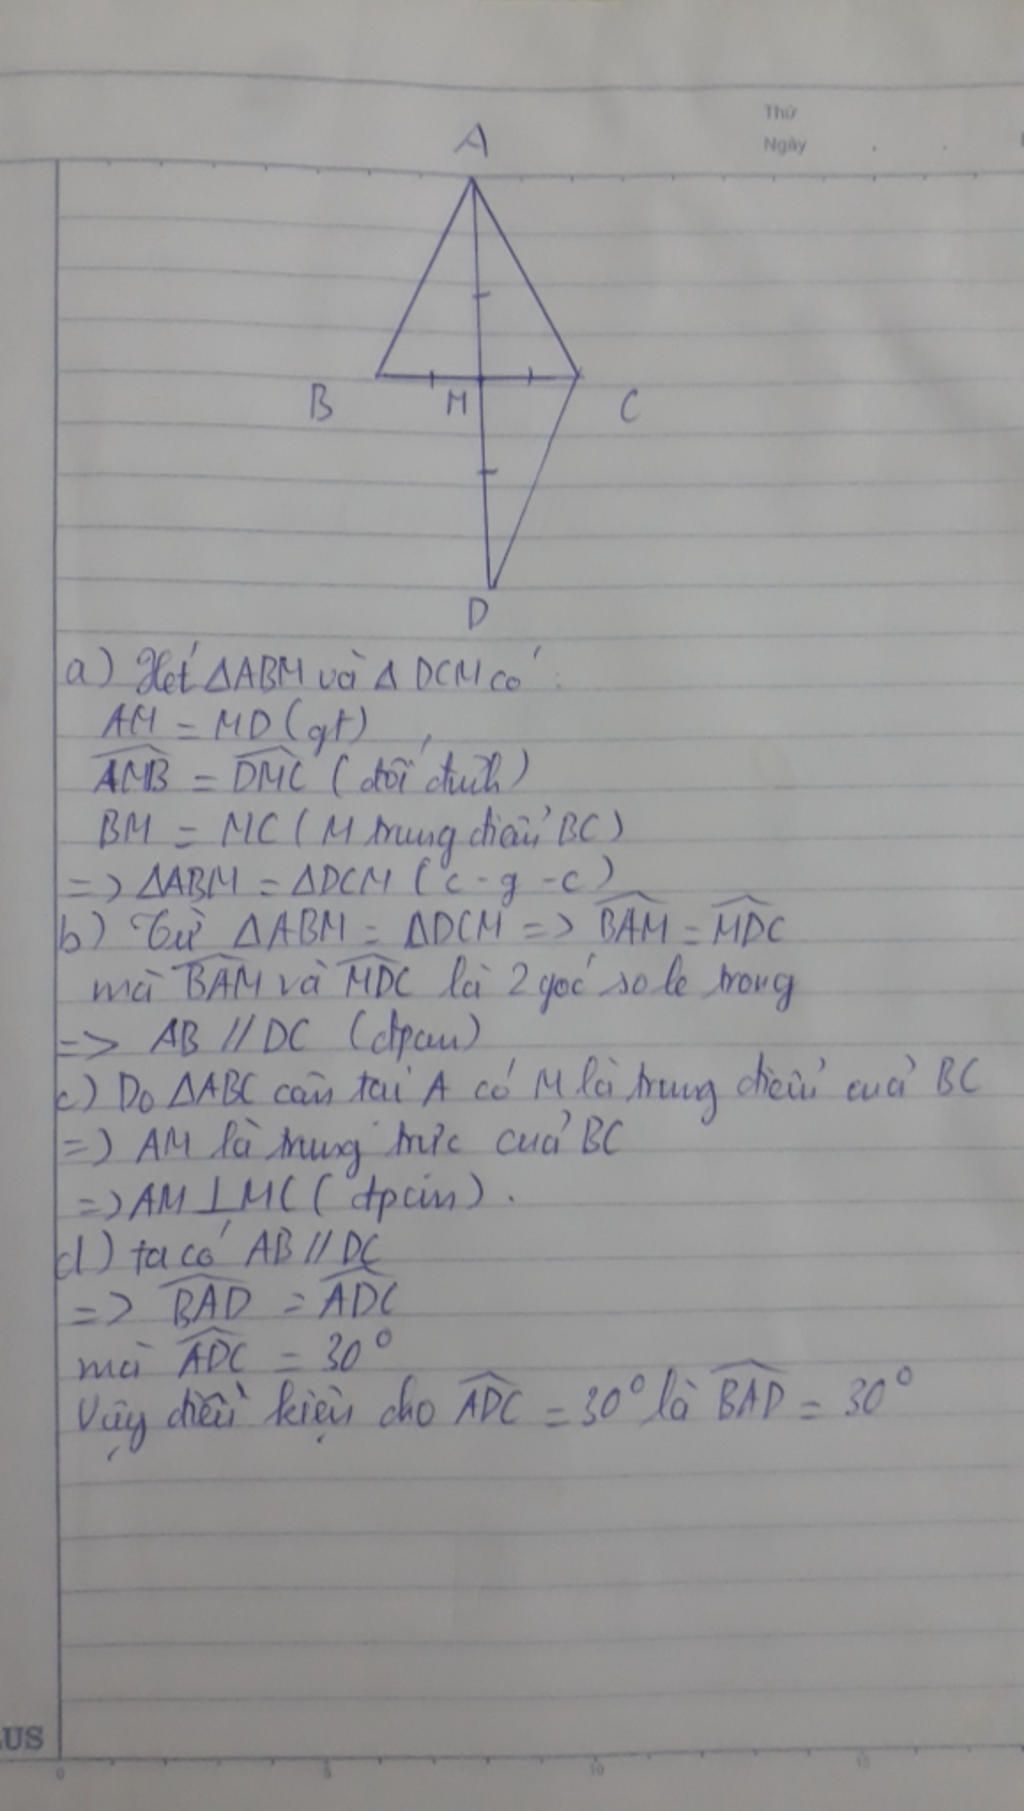 Thứ
Ngày
A
B M C
D
a) Xét ΔABM và Δ DCM có :
AM = MD (gt)
AMB = DMC (đối đỉnh)
BM = MC ( M trung điểm BC)
=> ΔABM = ΔDCM ( c - g - c )
b) Từ ΔABM = ΔDCM => BAM = MDC
mà BAM và MDC là 2 góc so le trong
=> AB // DC (đpcm)
c) Do ΔABC cân tại A có M là trung điểm của BC
=> AM là trung trực của BC
=> AM ⊥ MC ( đpcm) .
d) ta có AB // DC
=> BAD = ADC
mà ADC = 30°
Vậy điều kiện cho ADC = 30° là BAD = 30°
LUS
0 5 10 15